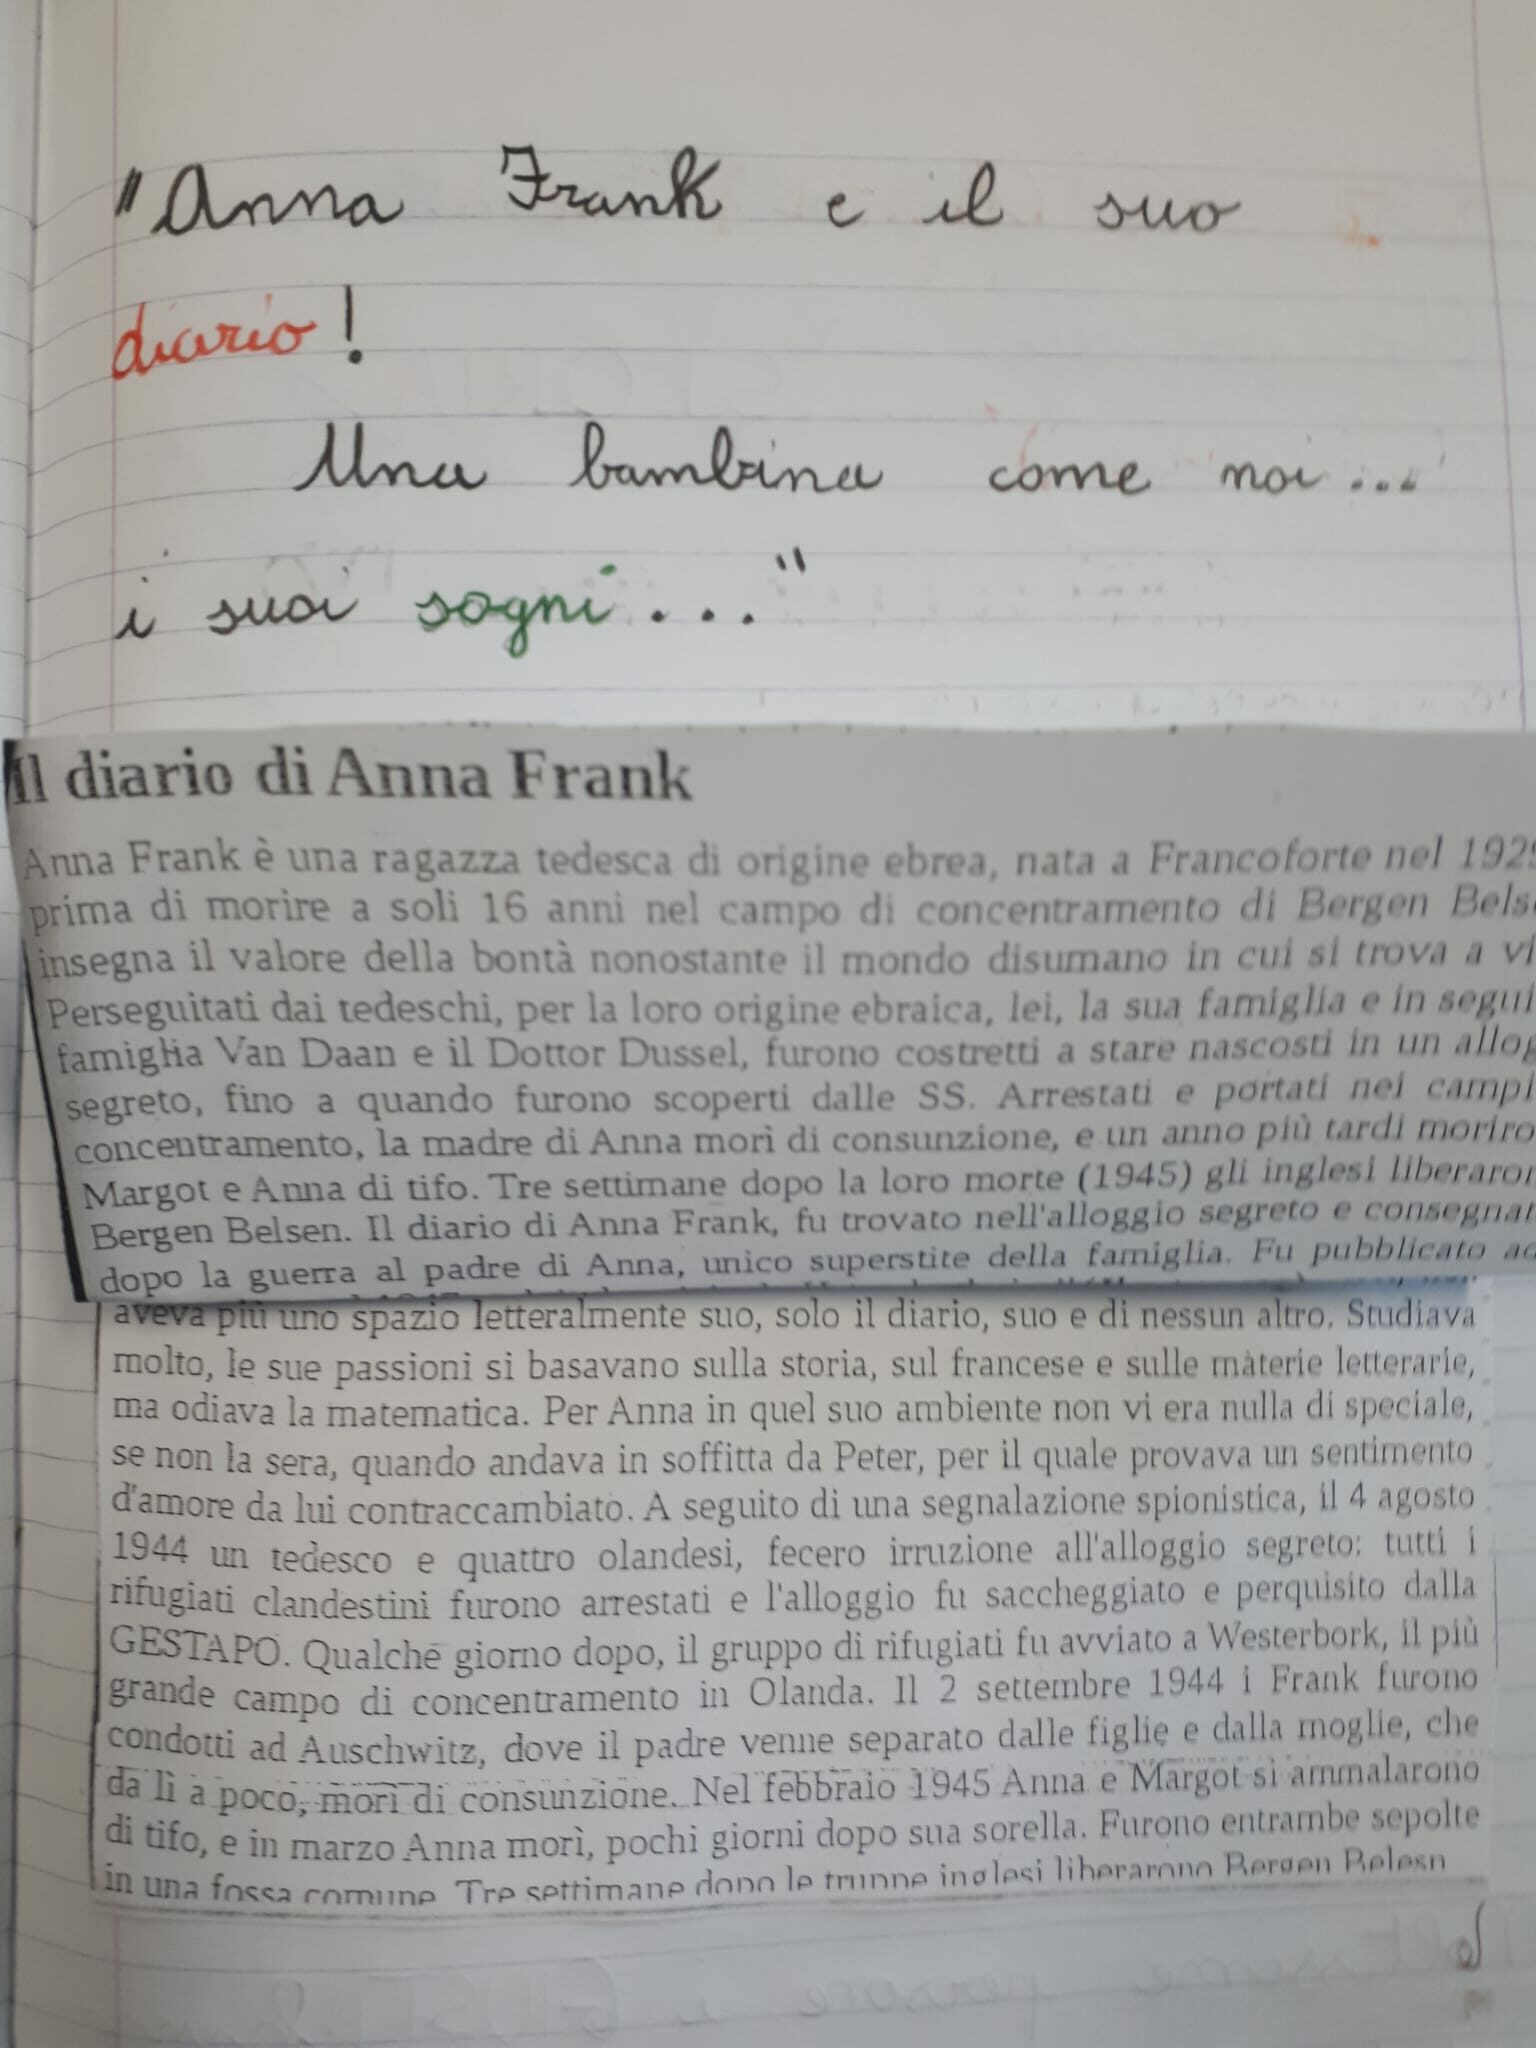 "Anna Frank e il suo
diario!
Una bambina come noi...
i suoi sogni..."
Il diario di Anna Frank
Anna Frank è una ragazza tedesca di origine ebrea, nata a Francoforte nel 192
prima di morire a soli 16 anni nel campo di concentramento di Bergen Bels
insegna il valore della bontà nonostante il mondo disumano in cui si trova a vi
Perseguitati dai tedeschi, per la loro origine ebraica, lei, la sua famiglia e in segui
famiglia Van Daan e il Dottor Dussel, furono costretti a stare nascosti in un allog
segreto, fino a quando furono scoperti dalle SS. Arrestati e portati nei campi
concentramento, la madre di Anna morì di consunzione, e un anno più tardi moriro
Margot e Anna di tifo. Tre settimane dopo la loro morte (1945) gli inglesi liberaron
Bergen Belsen. Il diario di Anna Frank, fu trovato nell'alloggio segreto e consegnat
dopo la guerra al padre di Anna, unico superstite della famiglia. Fu pubblicato ad
aveva più uno spazio letteralmente suo, solo il diario, suo e di nessun altro. Studiava
molto, le sue passioni si basavano sulla storia, sul francese e sulle materie letterarie,
ma odiava la matematica. Per Anna in quel suo ambiente non vi era nulla di speciale,
se non la sera, quando andava in soffitta da Peter, per il quale provava un sentimento
d'amore da lui contraccambiato. A seguito di una segnalazione spionistica, il 4 agosto
1944 un tedesco e quattro olandesi, fecero irruzione all'alloggio segreto: tutti i
rifugiati clandestini furono arrestati e l'alloggio fu saccheggiato e perquisito dalla
GESTAPO. Qualche giorno dopo, il gruppo di rifugiati fu avviato a Westerbork, il più
grande campo di concentramento in Olanda. Il 2 settembre 1944 i Frank furono
condotti ad Auschwitz, dove il padre venne separato dalle figlie e dalla moglie, che
da lì a poco, morì di consunzione. Nel febbraio 1945 Anna e Margot si ammalarono
di tifo, e in marzo Anna morì, pochi giorni dopo sua sorella. Furono entrambe sepolte
in una fossa comune. Tre settimane dopo le truppe inglesi liberarono Bergen Belesn